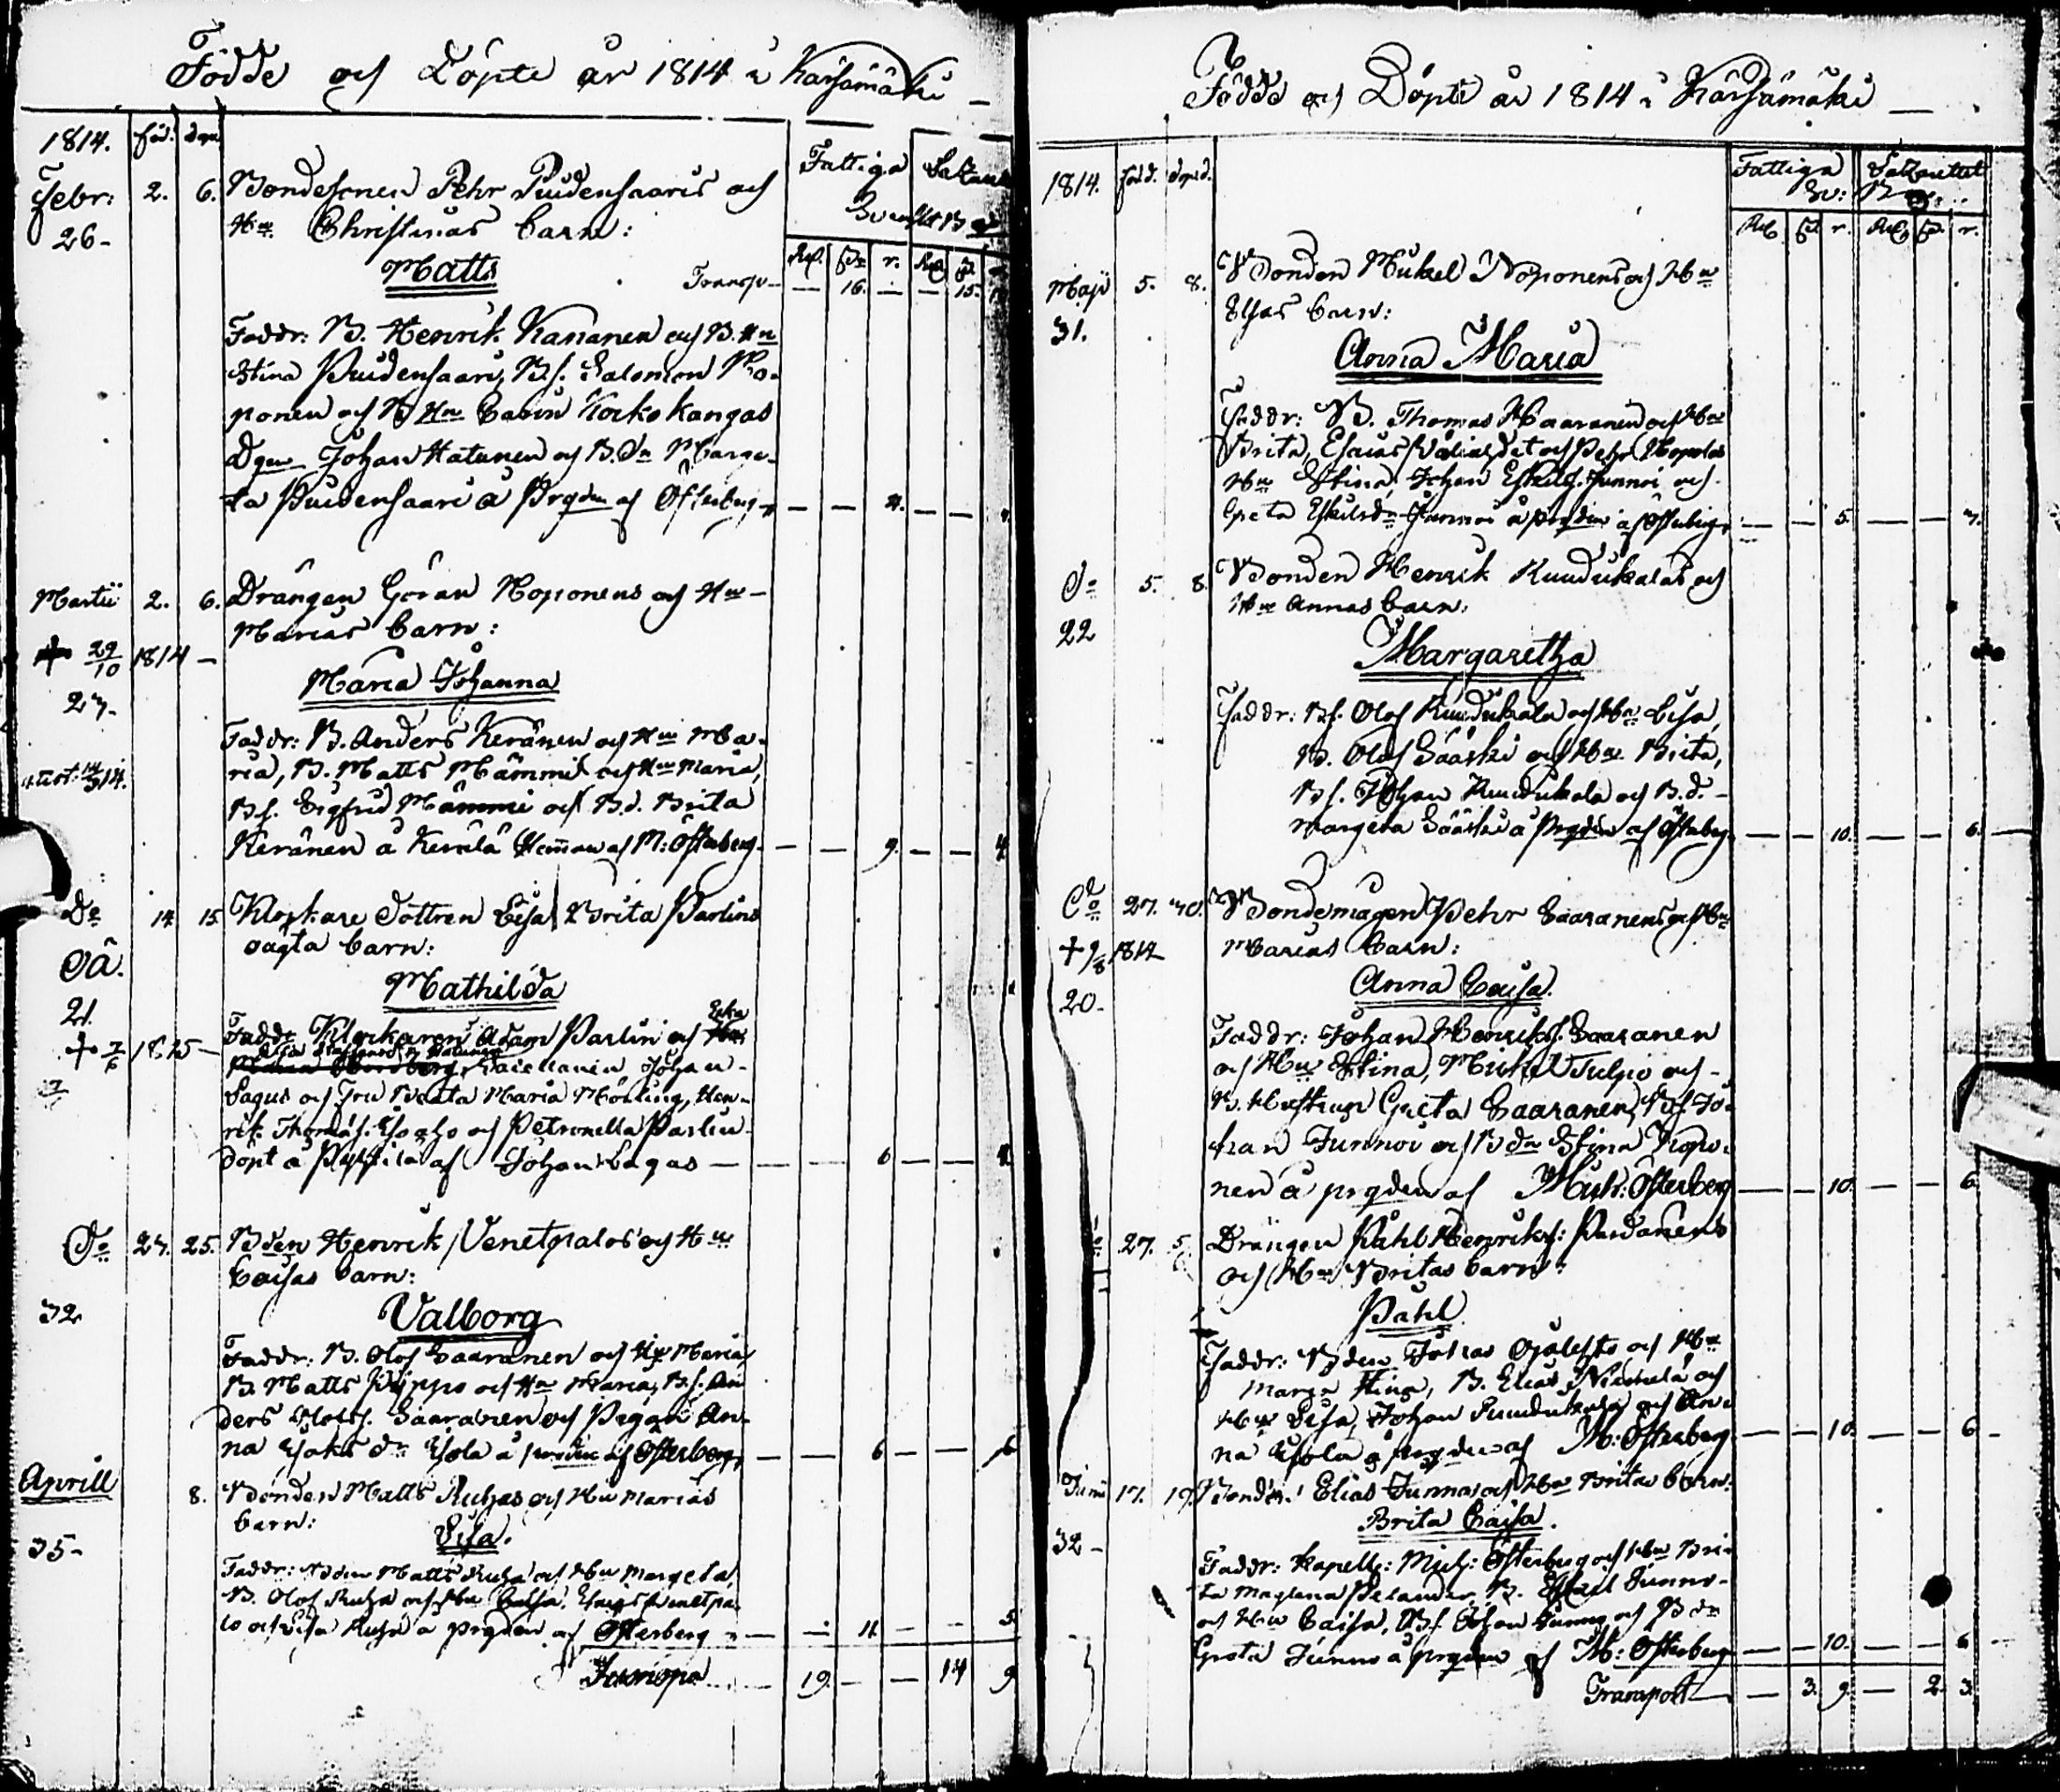 Födde och Döpte år 1814 i Kärsämäki
1814. föd: döpt
Fattiga Lazaret
Rd. sk. r. Rd. sk. r.
Febr: 2. 6. Bondesonen Pehr Puidensaaris och
26- Hu Christinas barn:
Matts
Transp. — 16. — — 15.
Faddr: B. Henrik Kananen och B. Hu
Stina Puidensaari, B.s. Salomon Ro-
ponen och B Hu Carin Korkokangas
Dgen Johan Hatunen och B.Dr Marge-
ta Puidensaari å Prgden af Österberg — — 4. — —
Martii 2. 6. Drängen Göran Roponens och Hu
Marias barn:
+ 29/10 1814 —
Maria Johanna
27-
Faddr: B. Anders Keränen och Hu Ma-
ria, B. Matts Mämmi och Hu Maria,
B.s. Sigfrid Mämmi och B.d. Brita
Keränen å Kerälä Hemman af M: Österberg — — 9. — — 4
Do 14 15 Klockare Dottren Lisa Brita Parlins
oägta barn:
OÄ.
Mathilda
21.
Faddr Klockaren Adam Parlin och
+ 7/6 1815 —
Johan
Lagus och Fru Beata Maria Mörling, Hen-
rik Thomæs. och Petronella Parlin
döpt å Pyssilä af Johan Lagus — — 6 — — 4
Do 23. 25. Bden Henrik Venetpalos och Hu
Caisas barn:
32
Valborg
Faddr: B. Olof Saaranen och Hu Maria
B. Matts Pippo och Hu Maria, B.s. An
ders Olofs. Saaranen och Pigan An-
na Isaks dr Isola å prgden af Österberg — — 6 — — 6
Aprill 8. Bonden Matts Ruhas och Hu Marias
barn:
Lisa.
35-
Faddr: Bden Matts Ruha och Hu Margeta
B. Olof Ruha och Hu Caisa, Venetpa-
lo och Lisa Ruha å prgden af Österberg — — 11 — — 5
Transp. — 19. — — 14 9
Födde och Döpte år 1814 i Kärsämäki
1814. född. döpt.
Fattiga Lazarettet
Rd. sk. r. Rd. sk. r.
Maji 5. 8. Bonden Mickel Roponens och Hu
Elsas barn:
31.
Anna Maria
Faddr: B. Thomas Haaranen och Hu
Brita, Esaias och Pehr
Hu Stina, Johan Eskils. Junnoi och
Greta Eskilsdr Junnoi å prgden af Österberg — — 5. — — 3.
Do 5. 8. Bonden Henrik Ruudukalas och
Hu Annas barn:
22
Margaretha
Faddr: B.s. Olof Ruudukala och Hu Lisa,
B. Olof Sääski och Hu Brita,
B.s. Johan Ruudukala och B.d.
Margeta Sääski å Prgden af Österberg — — 10. — — 6.
Do 27. 30. Bondemågen Pehr Saaranens och Hu
+ 9/8 1814 Marias barn:
Anna Caisa.
20-
Faddr: Johan Henriks. Saaranen
och Hu Stina, Mickel Tulpio och
B. Hustrun Greta Saaranen, B.s. Jo-
han Junnoi och B dr Stina Ropo-
nen å prgden af Mich: Österberg — — 10. — — 6
27. 5. Drängen Påhl Henriks: Pardanens
och Hu Britas barn:
Påhl.
Faddr: Bden Johas Ojalehto och Hu
Maria Stina, B. Elias Niemelä och
Hu Lisa, Johan Ruudukala och An-
na Isola å prgden af M: Österberg — — 10. — — 6
Junii 17. 19. Bonden Elias Junnos och Hu Britas barn:
Brita Caisa.
32-
Faddr: Kapell: Mich: Österberg och Hu Bri-
ta Maglena Pelander, B. Eskil Junno
och Hu Caisa, B.s. Johan Junno och B dr
Greta Junno å prgden af M: Österberg — — 10. — — 6
Transport — 3. 9. — 2. 3.